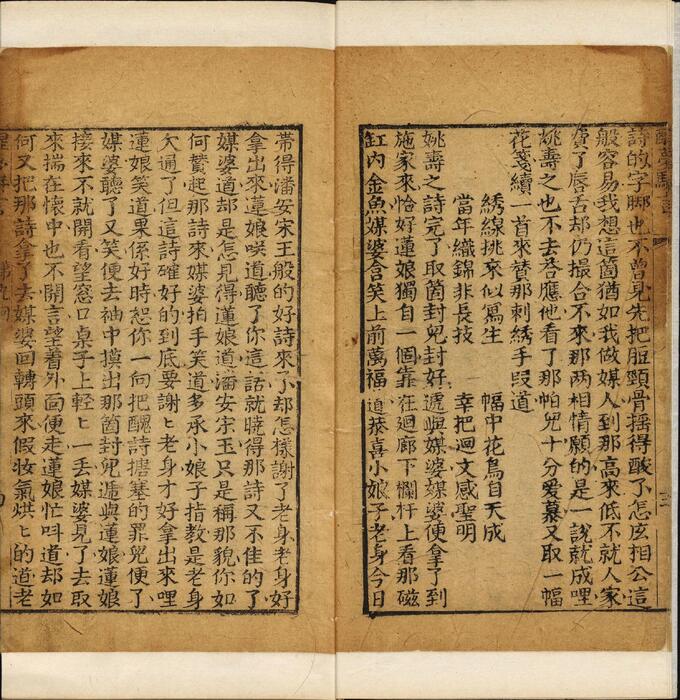 詩的字脚也不曾見先把脰頸骨揺得酸了怎庅相公這
般容易我想這箇猶如我做媒人到那高來低不就人家
費了唇舌却仍撮合不來那两相情願的是一說就成哩
姚壽之也不去荅應他看了那帕兒十分爱慕又取一幅
花箋續一首來賛那刺綉手叚道
綉線挑來似寫生　幅中花鳥自天成
當年織錦非長技　幸把迴文感聖明
姚壽之詩完了取箇封兒封好遞與媒婆媒婆便拿了到
施家來恰好蓮娘獨自一個靠在迴廊下欄杆上看那磁
缸内金魚媒婆含笑上前萬福道恭喜小娘子老身今日
帶得潘安宋王般的好詩來了却怎樣謝了老身老身好
拿出來蓮娘咲道聽了你這話就曉得那詩又不佳的了
媒婆道却是怎見得蓮娘道潘安宋玉只是稱那貌你如
何賛起那詩來媒婆拍手笑道多承小娘子指教是老身
欠通了但這詩確好的到底要謝ヒ老身才好拿出來哩
蓮娘笑道果係好時恕你一向把醜詩搪塞的罪兒便了
媒婆聽了又笑便去袖中摸出那箇封兒遞與蓮娘蓮娘
接來不就開看望窓口桌子上輕ヒ一丢媒婆見了去取
來揣在懷中也不開言望着外面便走蓮娘忙呌道却如
何又把那詩拿了去媒婆回轉頭來假妝氣烘ヒ的道老